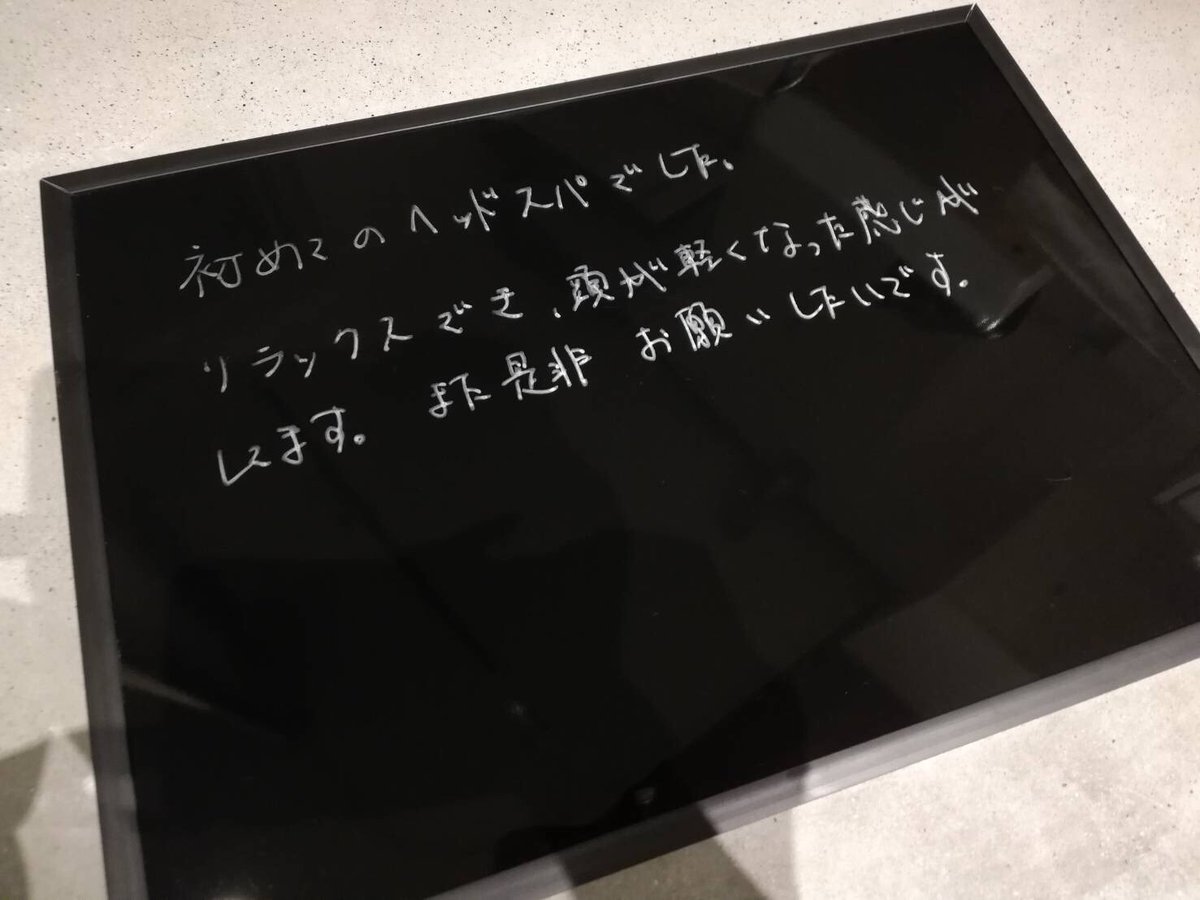 初めてのヘッドスパでした。
リラックスでき、頭が軽くなった感じが
します。また是非 お願いしたいです。